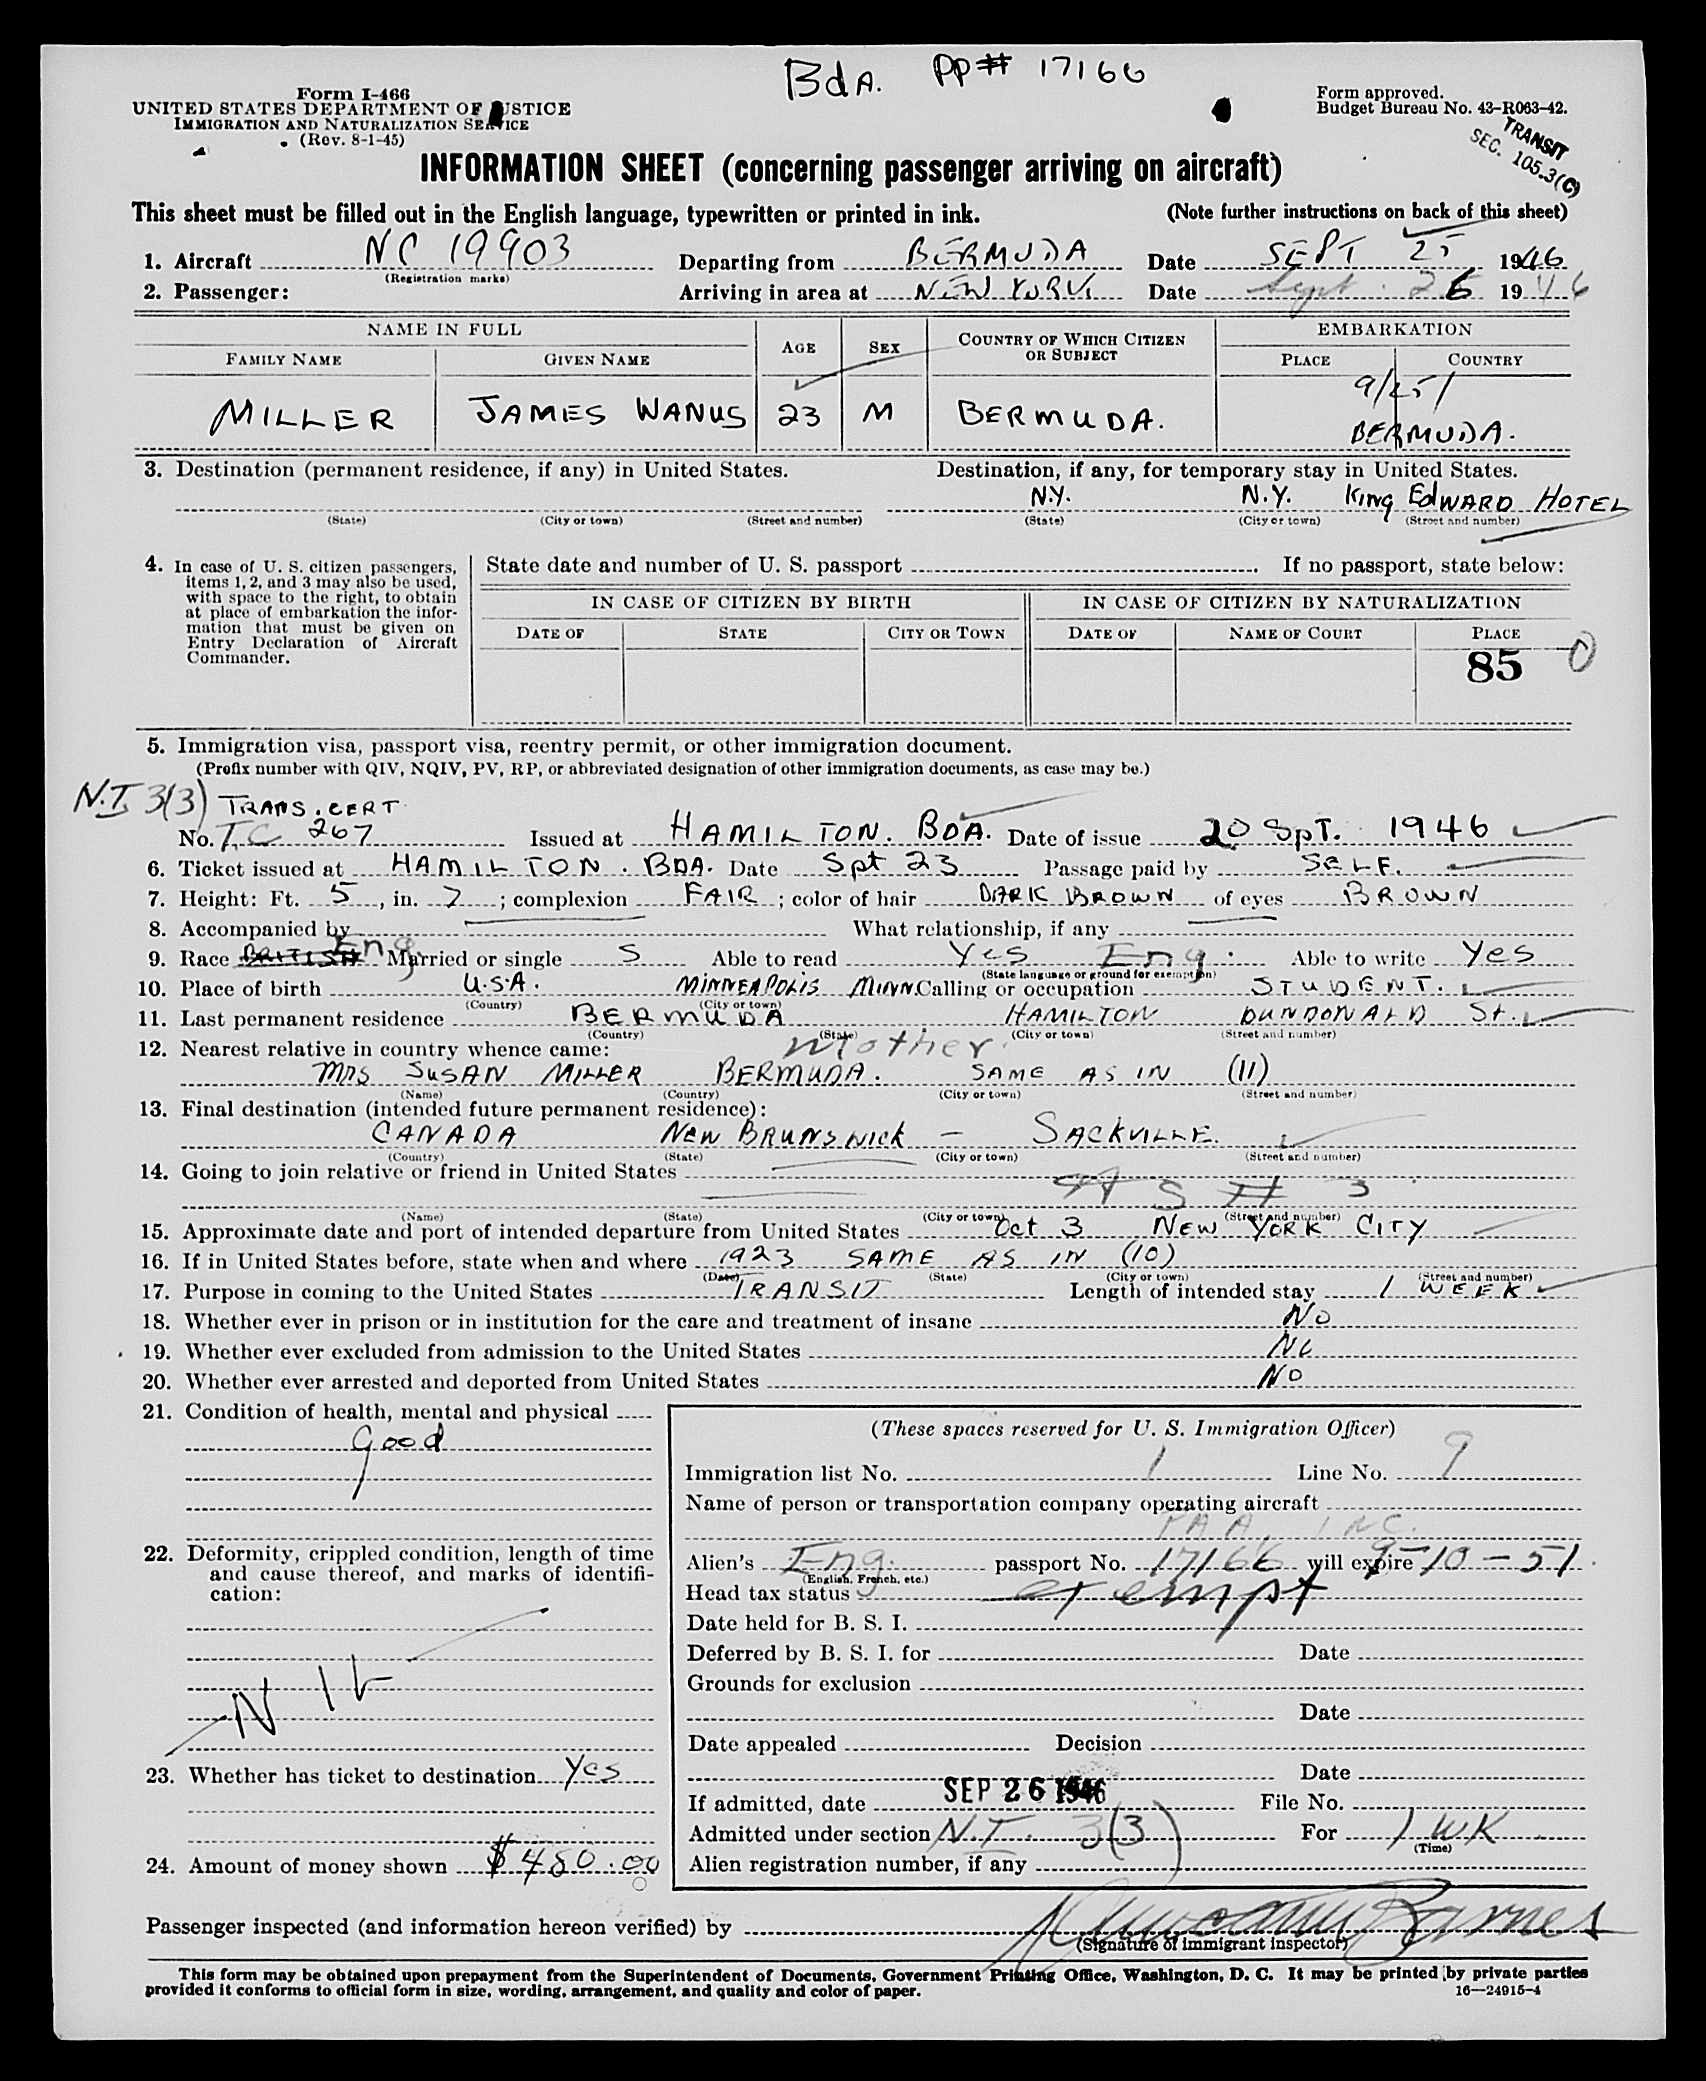 BdA. PP# 17166
Form I-466
UNITED STATES DEPARTMENT OF JUSTICE
IMMIGRATION AND NATURALIZATION SERVICE
(Rev. 8-1-45)
Form approved.
Budget Bureau No. 43-R063-42.
TRANSIT
SEC. 105.3(C)
INFORMATION SHEET (concerning passenger arriving on aircraft)
This sheet must be filled out in the English language, typewritten or printed in ink. (Note further instructions on back of this sheet)
1. Aircraft NC 19903 Departing from BERMUDA Date SEPT 25 1946
(Registration marks)
2. Passenger: Arriving in area at NEW YORK Date Sept. 26 1946
NAME IN FULL AGE SEX COUNTRY OF WHICH CITIZEN OR SUBJECT EMBARKATION
FAMILY NAME GIVEN NAME PLACE COUNTRY
9/25/
MILLER JAMES WANUS 23 M BERMUDA. BERMUDA.
3. Destination (permanent residence, if any) in United States. Destination, if any, for temporary stay in United States.
N.Y. N.Y. King EdWARD HOTEL
(State) (City or town) (Street and number) (State) (City or town) (Street and number)
4. In case of U. S. citizen passengers, items 1, 2, and 3 may also be used, with space to the right, to obtain at place of embarkation the information that must be given on Entry Declaration of Aircraft Commander.
State date and number of U. S. passport If no passport, state below:
IN CASE OF CITIZEN BY BIRTH IN CASE OF CITIZEN BY NATURALIZATION
DATE OF STATE CITY OR TOWN DATE OF NAME OF COURT PLACE
85 0
5. Immigration visa, passport visa, reentry permit, or other immigration document.
(Prefix number with QIV, NQIV, PV, RP, or abbreviated designation of other immigration documents, as case may be.)
N.T. 3(3) TRANS. CERT
No. T.C 267 Issued at HAMILTON. BDA. Date of issue 20 SpT. 1946
6. Ticket issued at HAMILTON. BDA. Date Spt 23 Passage paid by SELF.
7. Height: Ft. 5, in. 7; complexion FAIR; color of hair DARK BROWN of eyes BROWN
8. Accompanied by What relationship, if any
9. Race BRITISH Eng Married or single S Able to read Yes Eng. Able to write Yes
(State language or ground for exemption)
10. Place of birth U.S.A. MINNEAPOLIS MINN. Calling or occupation STUDENT.
(Country) (City or town)
11. Last permanent residence BERMUDA HAMILTON DUNDONALD St.
(Country) (State) (City or town) (Street and number)
12. Nearest relative in country whence came: Mother.
Mrs SUSAN MILLER BERMUDA. SAME AS IN (11)
(Name) (Country) (City or town) (Street and number)
13. Final destination (intended future permanent residence):
CANADA NEW BRUNSWICK - SACKVILLE.
(Country) (State) (City or town) (Street and number)
14. Going to join relative or friend in United States
(Name) (State) (City or town) (Street and number)
15. Approximate date and port of intended departure from United States Oct 3 NEW YORK CITY
16. If in United States before, state when and where 1923 SAME AS IN (10)
(Date) (State) (City or town) (Street and number)
17. Purpose in coming to the United States TRANSIT Length of intended stay 1 WEEK
18. Whether ever in prison or in institution for the care and treatment of insane No
19. Whether ever excluded from admission to the United States No
20. Whether ever arrested and deported from United States No
21. Condition of health, mental and physical
Good
22. Deformity, crippled condition, length of time and cause thereof, and marks of identification:
NIL
23. Whether has ticket to destination Yes
24. Amount of money shown $480.00
(These spaces reserved for U. S. Immigration Officer)
Immigration list No. 1 Line No. 9
Name of person or transportation company operating aircraft
PAA, INC.
Alien's Eng. passport No. 17166 will expire 9-10-51
(English, French, etc.)
Head tax status exempt
Date held for B. S. I.
Deferred by B. S. I. for Date
Grounds for exclusion
Date
Date appealed Decision
Date
If admitted, date SEP 26 1946 File No.
Admitted under section N.T. 3(3) For 1 WK
(Time)
Alien registration number, if any
Passenger inspected (and information hereon verified) by
(Signature of immigrant inspector)
This form may be obtained upon prepayment from the Superintendent of Documents, Government Printing Office, Washington, D. C. It may be printed by private parties
provided it conforms to official form in size, wording, arrangement, and quality and color of paper. 16—24915-4